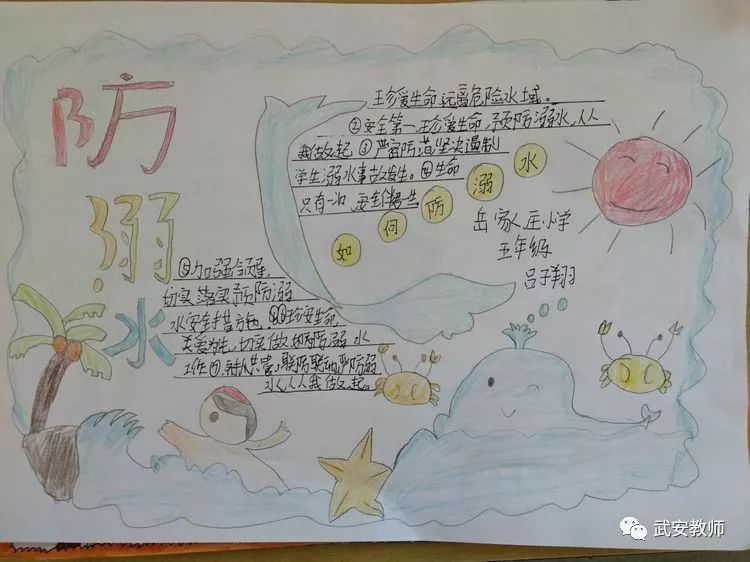 防溺水
珍爱生命,远离危险水域。
②安全第一,珍爱生命,予页防溺水,人人
我做起③严密防范坚决遏制
学生溺水事故发生。④生命
只有一次,安全伴一生
如何防溺水
岳家庄小学
五年级
吕子翔
⑤加强领导,
切实落实预防溺
水安全措施,⑥珍爱生命,
关爱学生,切实做好防溺水
工作⑦共管,联防联动严防溺
水,人人我做起。
武安教师